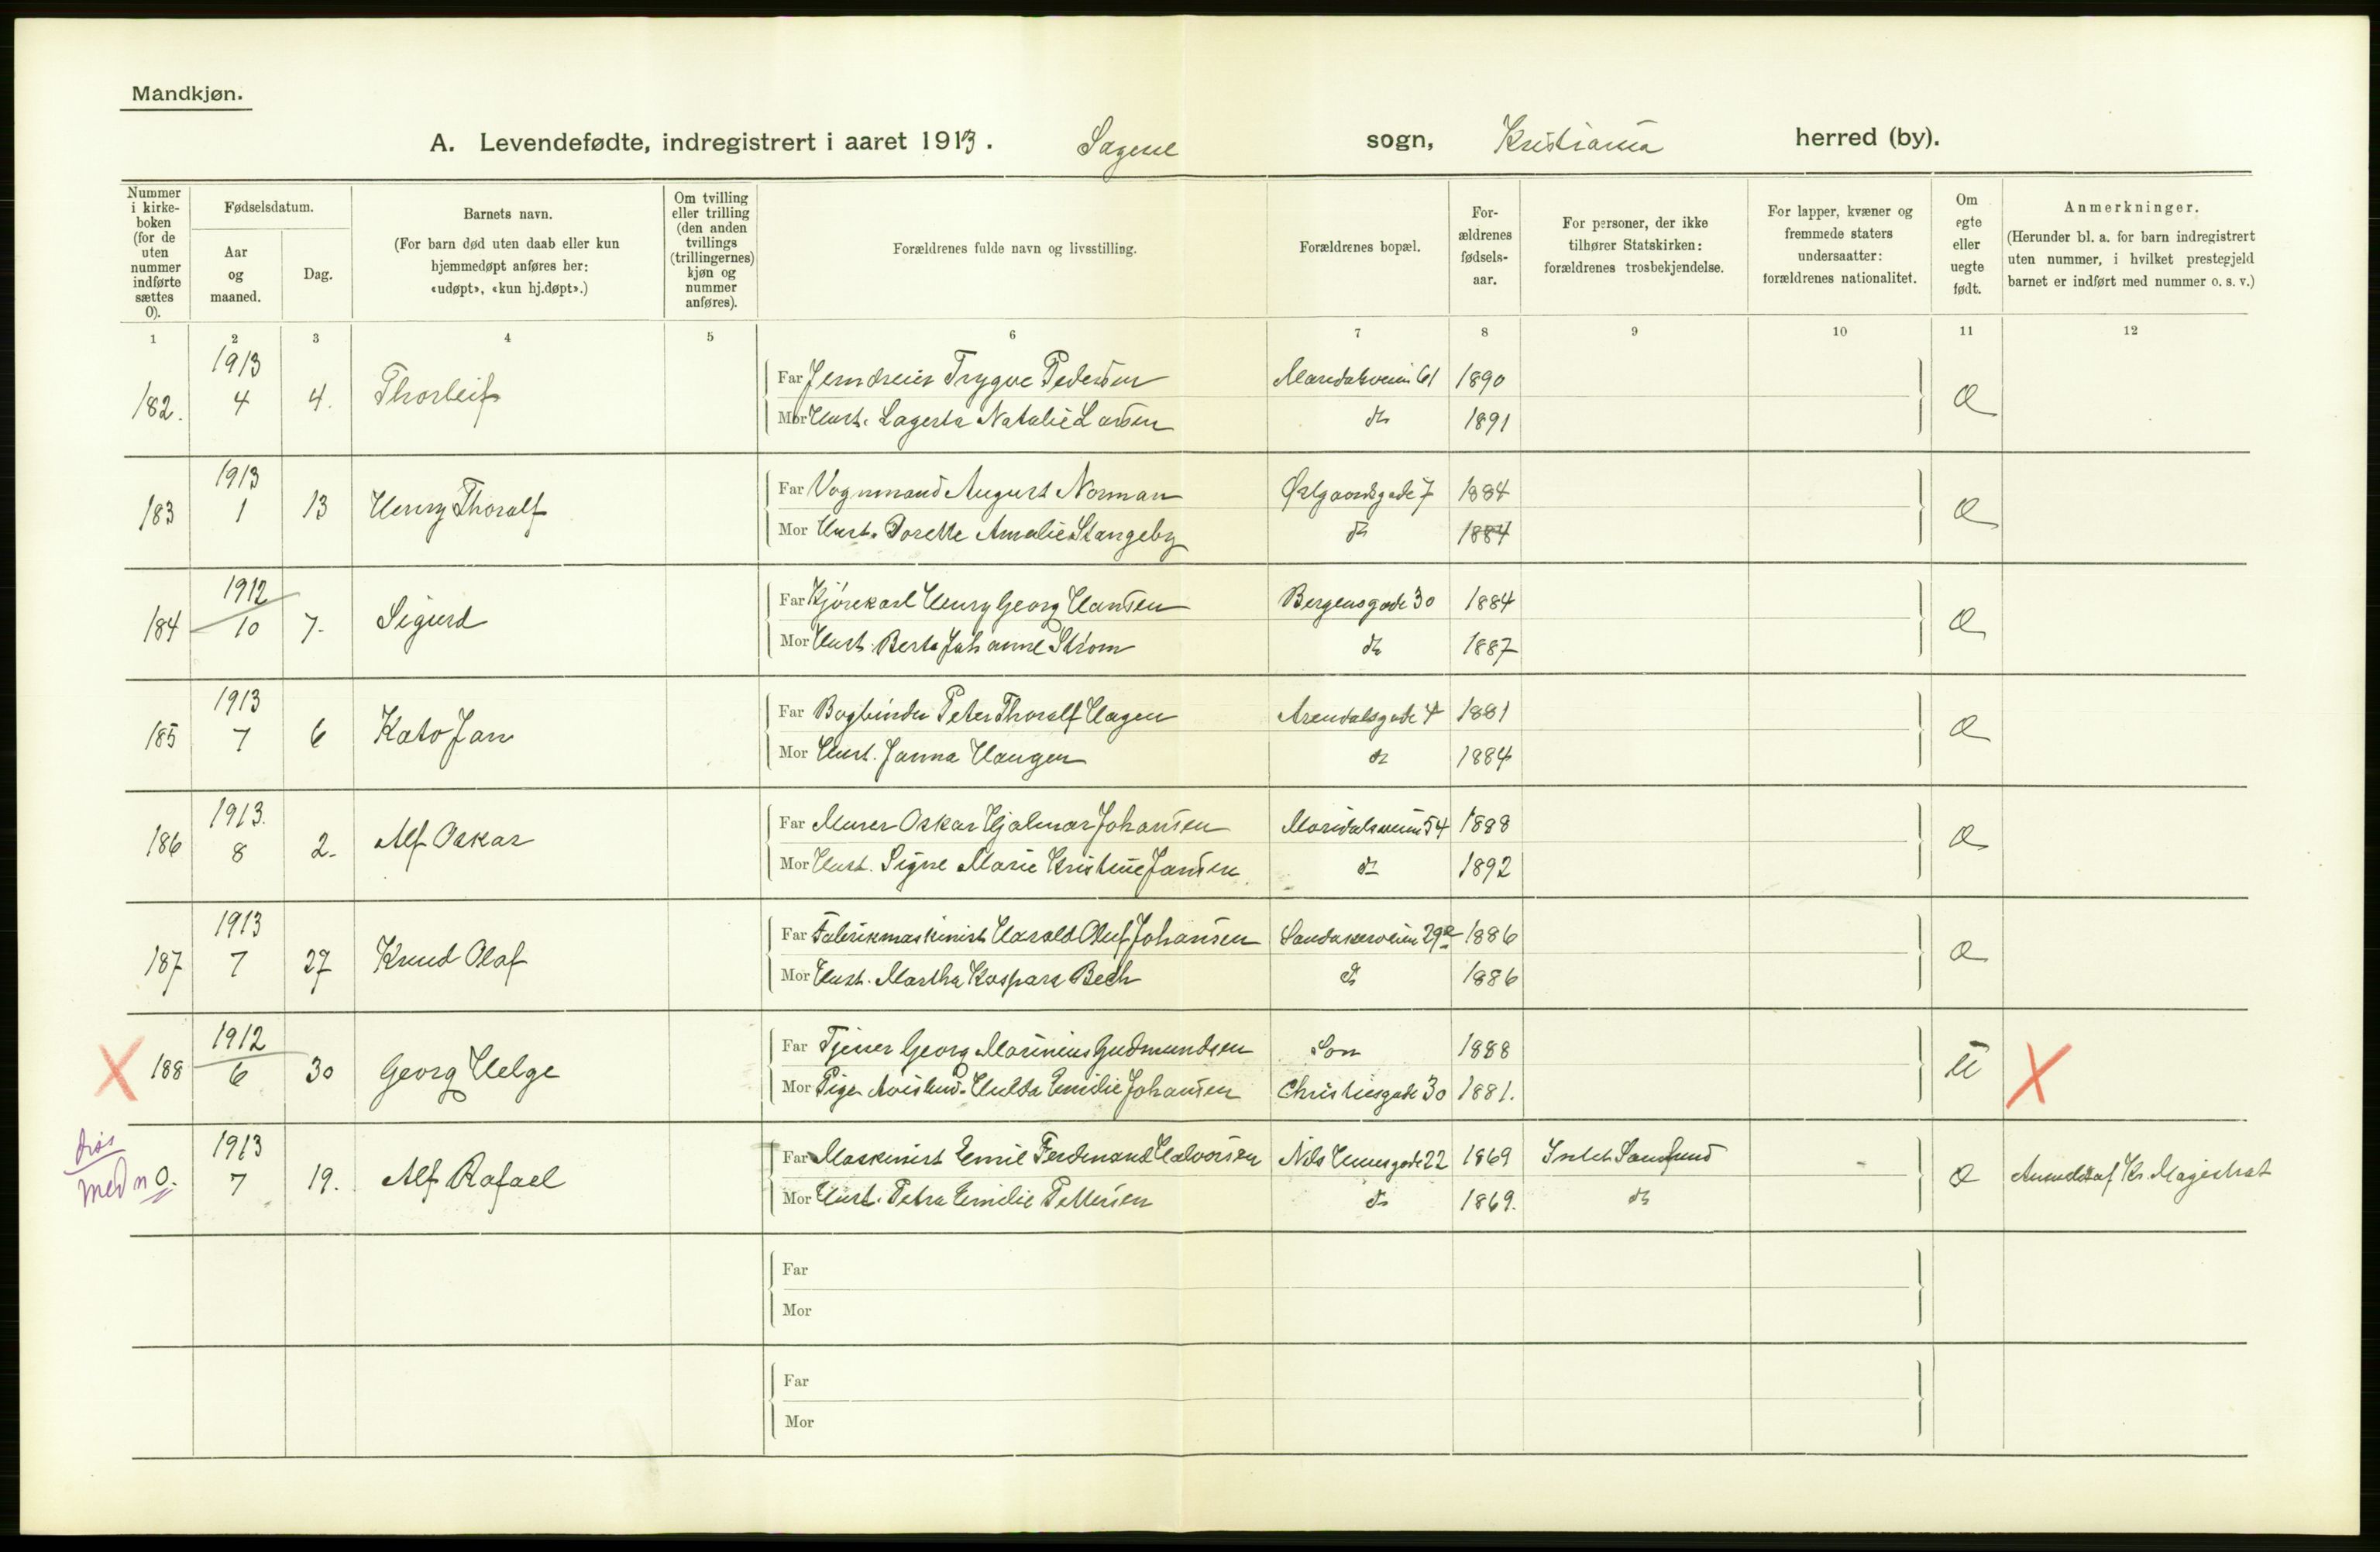 Mandkjøn.
A. Levendefødte, indregistrert i aaret 1913. Sagene sogn, Kristiania herred (by).
Nummer i kirke-boken (for de uten nummer indførte sættes 0).
Fødselsdatum.
Aar og maaned.
Dag.
Barnets navn.
(For barn død uten daab eller kun hjemmedøpt anføres her: «udøpt», «kun hj.døpt».)
Om tvilling eller trilling (den anden tvillings (trillingernes) kjøn og nummer anføres).
Forældrenes fulde navn og livsstilling.
Forældrenes bopæl.
For-ældrenes fødsels-aar.
For personer, der ikke tilhører Statskirken: forældrenes trosbekjendelse.
For lapper, kvæner og fremmede staters undersaatter: forældrenes nationalitet.
Om egte eller uegte født.
Anmerkninger.
(Herunder bl. a. for barn indregistrert uten nummer, i hvilket prestegjeld barnet er indført med nummer o. s. v.)
1 2 3 4 5 6 7 8 9 10 11 12
182. 1913 4 4. Thorleif Far Jerndreier Trygve Pedersen Maridalsveien 61 1890 Æ
Mor Hust. Lagerta Natalie Larsen do 1891
183 1913 1 13 Henry Thoralf Far Vognmand August Norman Østgaardsgade 7 1884 Æ
Mor Hust. Dorette Amalie Stangeby do 1884
184 1912 10 7. Sigurd Far Kjørekarl Henry Georg Hansen Bergensgade 30 1884 Æ
Mor Hust. Berta Johanne Strøm do 1887
185 1913 7 6 Kato Jan Far Bogbinder Peter Thoralf Hagen Arendalsgade 4 1881 Æ
Mor Hust. Janna Haugen do 1884
186 1913. 8 2. Alf Oskar Far Murer Oskar Hjalmar Johansen Maridalsveien 54 1888 Æ
Mor Hust. Signe Marie Kristine Jansen do 1892
187 1913 7 27 Knud Olaf Far Fabrikmaskinist Harald Oluf Johansen Sandakerveien 29 1886 Æ
Mor Hust. Martha Kaspara Bech do 1886
X 188 1912 6 30 Georg Helge Far Tjener Georg Marinius Gudmundsen 1888 U X
Mor Pige Hulda Emilie Johansen Christiesgade 30 1881.
med n 0. 1913 7 19. Alf Rafael Far Maskinist Emil Ferdinand Halvorsen Nils Huusgade 22 1869 Æ Anmeldt af Kr. Magistrat
Mor Hust. Petra Emilie Pettersen do 1869. do
Far
Mor
Far
Mor